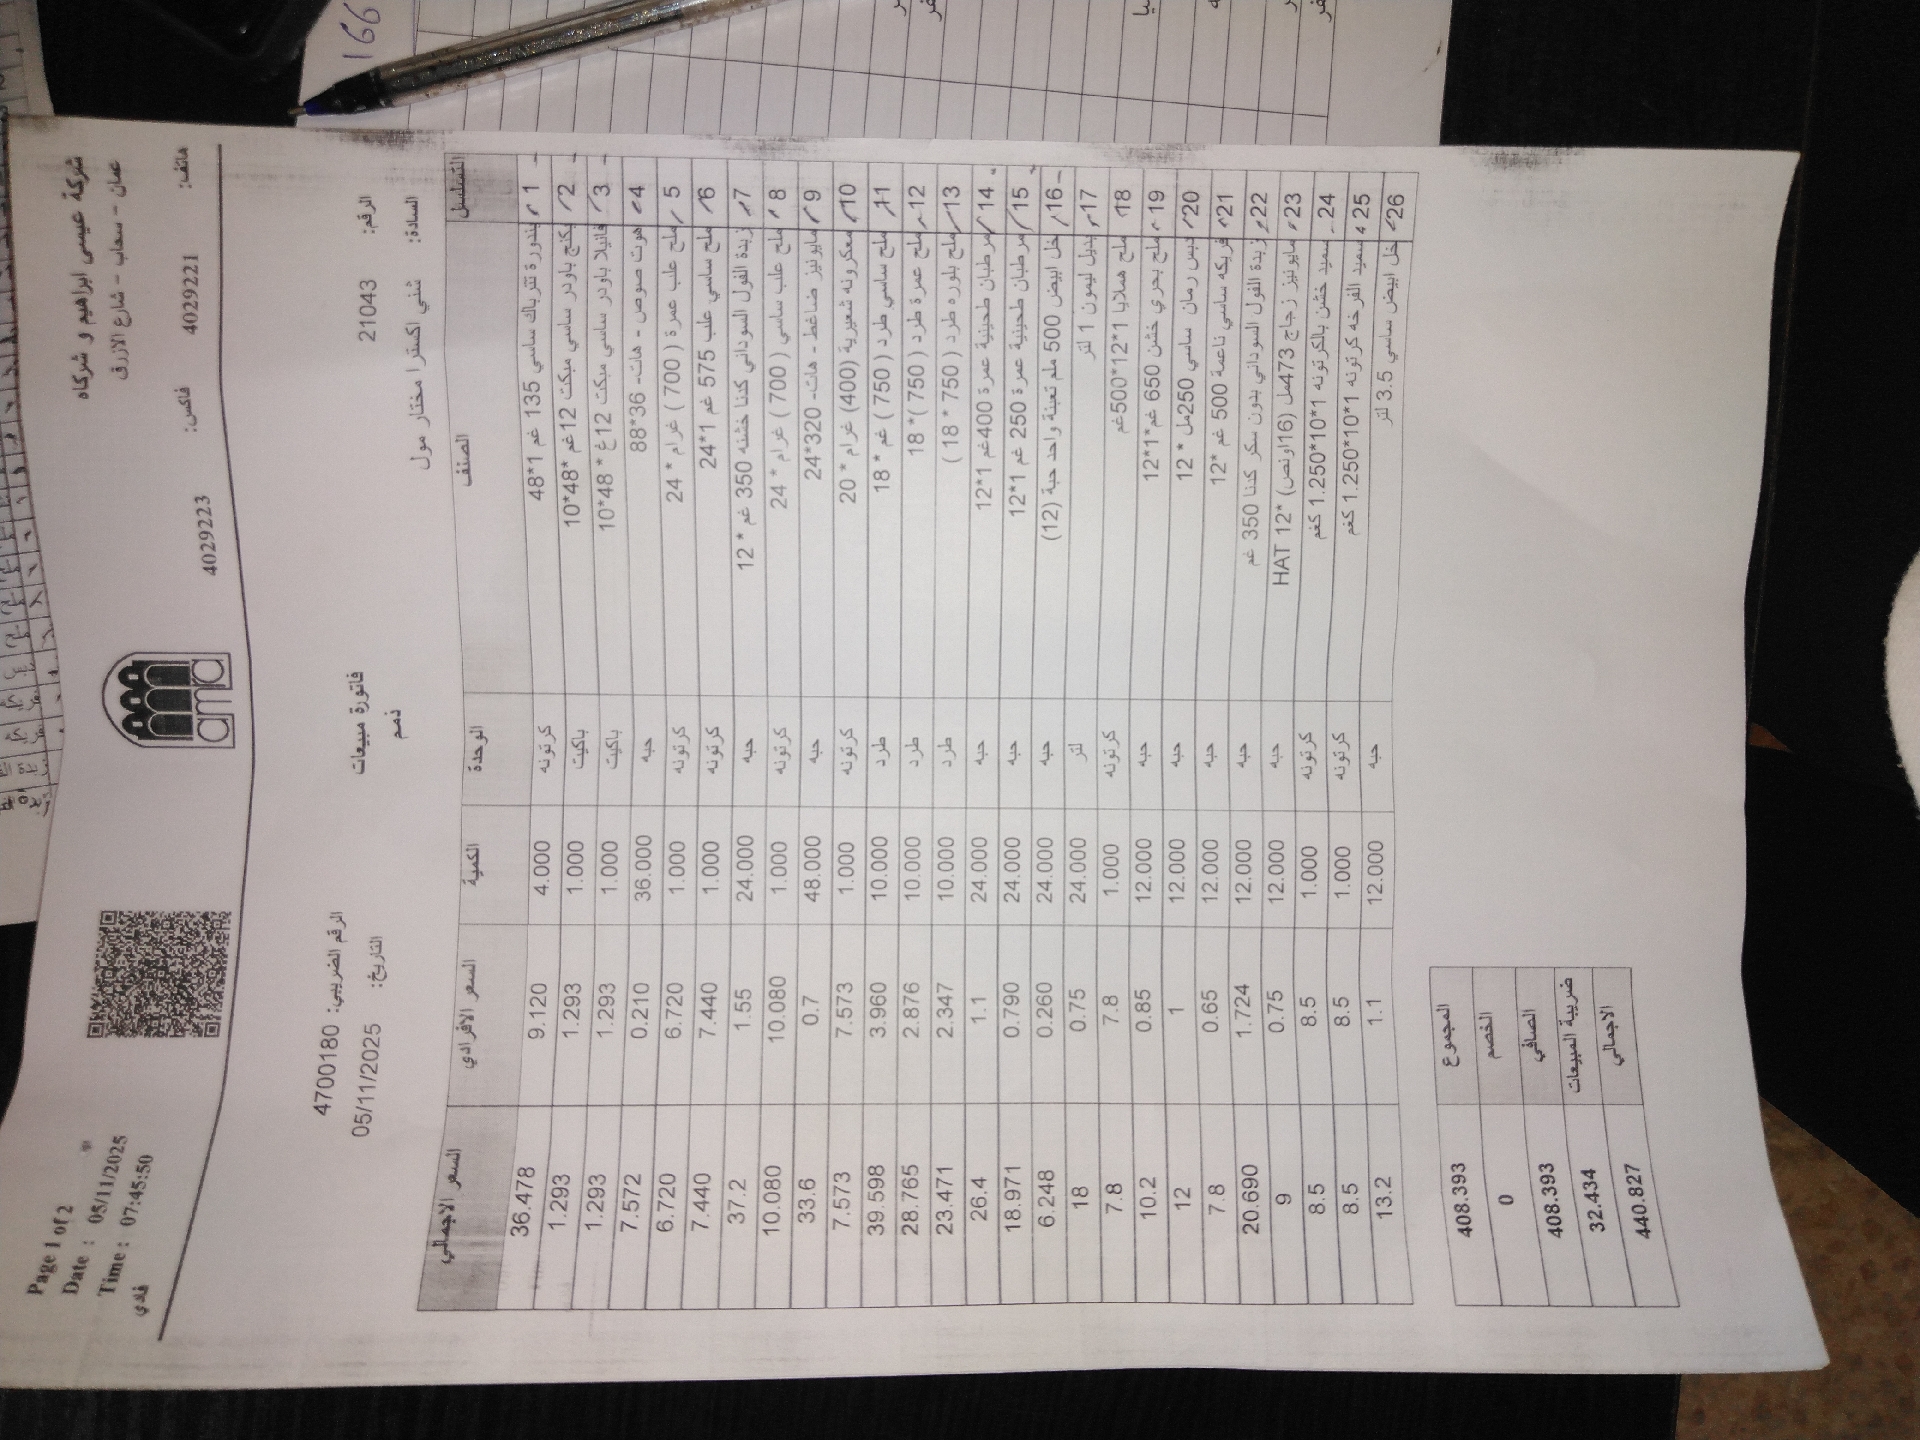 Page 1 of 2
Date : 05/11/2025
Time : 07:45:50
فادي
شركة عيسى ابراهيم و شركاه
عمان - سحاب - شارع الازرق
هاتف: 4029221 فاكس: 4029223
ama
فاتورة مبيعات
ذمم
الرقم: 21043
الرقم الضريبي: 4700180
السادة: شني اكسترا مختار مول
التاريخ: 05/11/2025
التسلسل الصنف الوحدة الكمية السعر الافرادي السعر الاجمالي
1 بندورة تتراباك ساسي 135 غم 1*48 كرتونه 4.000 9.120 36.478
2 بكنج باودر ساسي مبكت 12غم *48*10 باكيت 1.000 1.293 1.293
3 فانيلا باودر ساسي مبكت 12غ * 48*10 باكيت 1.000 1.293 1.293
4 هوت صوص - هات- 36*88 حبه 36.000 0.210 7.572
5 ملح علب عمرة ( 700 ) غرام * 24 كرتونه 1.000 6.720 6.720
6 ملح ساسي علب 575 غم 1*24 كرتونه 1.000 7.440 7.440
7 زبدة الفول السوداني كدنا خشنه 350 غم * 12 حبه 24.000 1.55 37.2
8 ملح علب ساسي ( 700 ) غرام * 24 كرتونه 1.000 10.080 10.080
9 مايونيز ضاغط - هات- 320*24 حبه 48.000 0.7 33.6
10 معكرونه شعيرية (400) غرام * 20 كرتونه 1.000 7.573 7.573
11 ملح ساسي طرد ( 750 ) غم * 18 طرد 10.000 3.960 39.598
12 ملح عمرة طرد ( 750 )* 18 طرد 10.000 2.876 28.765
13 ملح بلوره طرد ( 750 * 18 ) طرد 10.000 2.347 23.471
14 مرطبان طحينية عمرة 400غم 1*12 حبه 24.000 1.1 26.4
15 مرطبان طحينية عمرة 250 غم 1*12 حبه 24.000 0.790 18.971
16 خل ابيض 500 ملم تعبئة واحد حبة (12) حبه 24.000 0.260 6.248
17 بديل ليمون 1 لتر لتر 24.000 0.75 18
18 ملح هملايا 1*12*500غم كرتونه 1.000 7.8 7.8
19 ملح بحري خشن 650 غم*1*12 حبه 12.000 0.85 10.2
20 دبس رمان ساسي 250مل * 12 حبه 12.000 1 12
21 فريكه ساسي ناعمة 500 غم *12 حبه 12.000 0.65 7.8
22 زبدة الفول السوداني بدون سكر كدنا 350 غم حبه 12.000 1.724 20.690
23 مايونيز زجاج 473مل (16اونص) *12 HAT حبه 12.000 0.75 9
24 سميد خشن بالكرتونه 1*10*1.250 كغم كرتونه 1.000 8.5 8.5
25 سميد الفرخه كرتونه 1*10*1.250 كغم كرتونه 1.000 8.5 8.5
26 خل ابيض ساسي 3.5 لتر حبه 12.000 1.1 13.2
المجموع 408.393
الخصم 0
الصافي 408.393
ضريبة المبيعات 32.434
الاجمالي 440.827
166